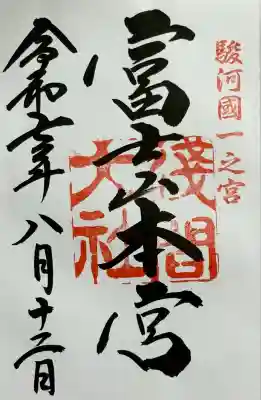 駿河國一之宮
富士山本宮
淺間大社
令和七年八月十二日